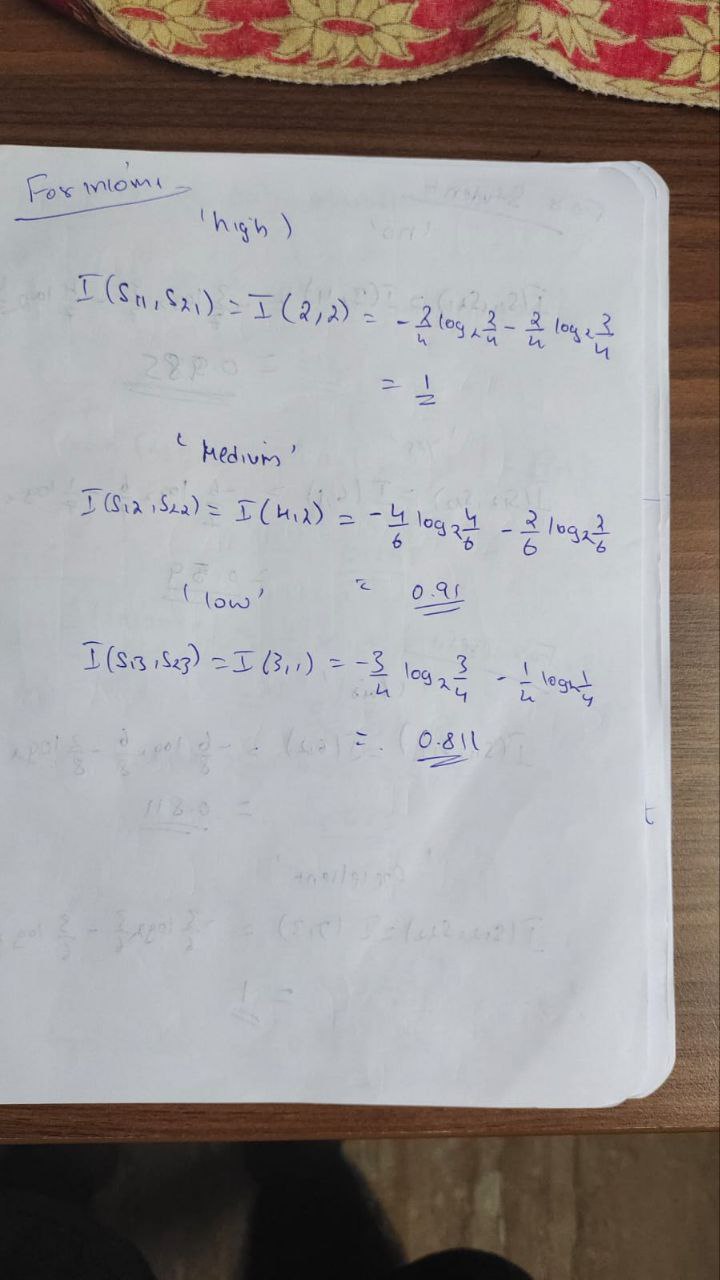 For income
'high'
I(S11, S21) = I(2,2) = -2/4 log2 2/4 - 2/4 log2 2/4
= 1
'Medium'
I(S12, S22) = I(4,2) = -4/6 log2 4/6 - 2/6 log2 2/6
= 0.91
'low'
I(S13, S23) = I(3,1) = -3/4 log2 3/4 - 1/4 log2 1/4
= 0.811